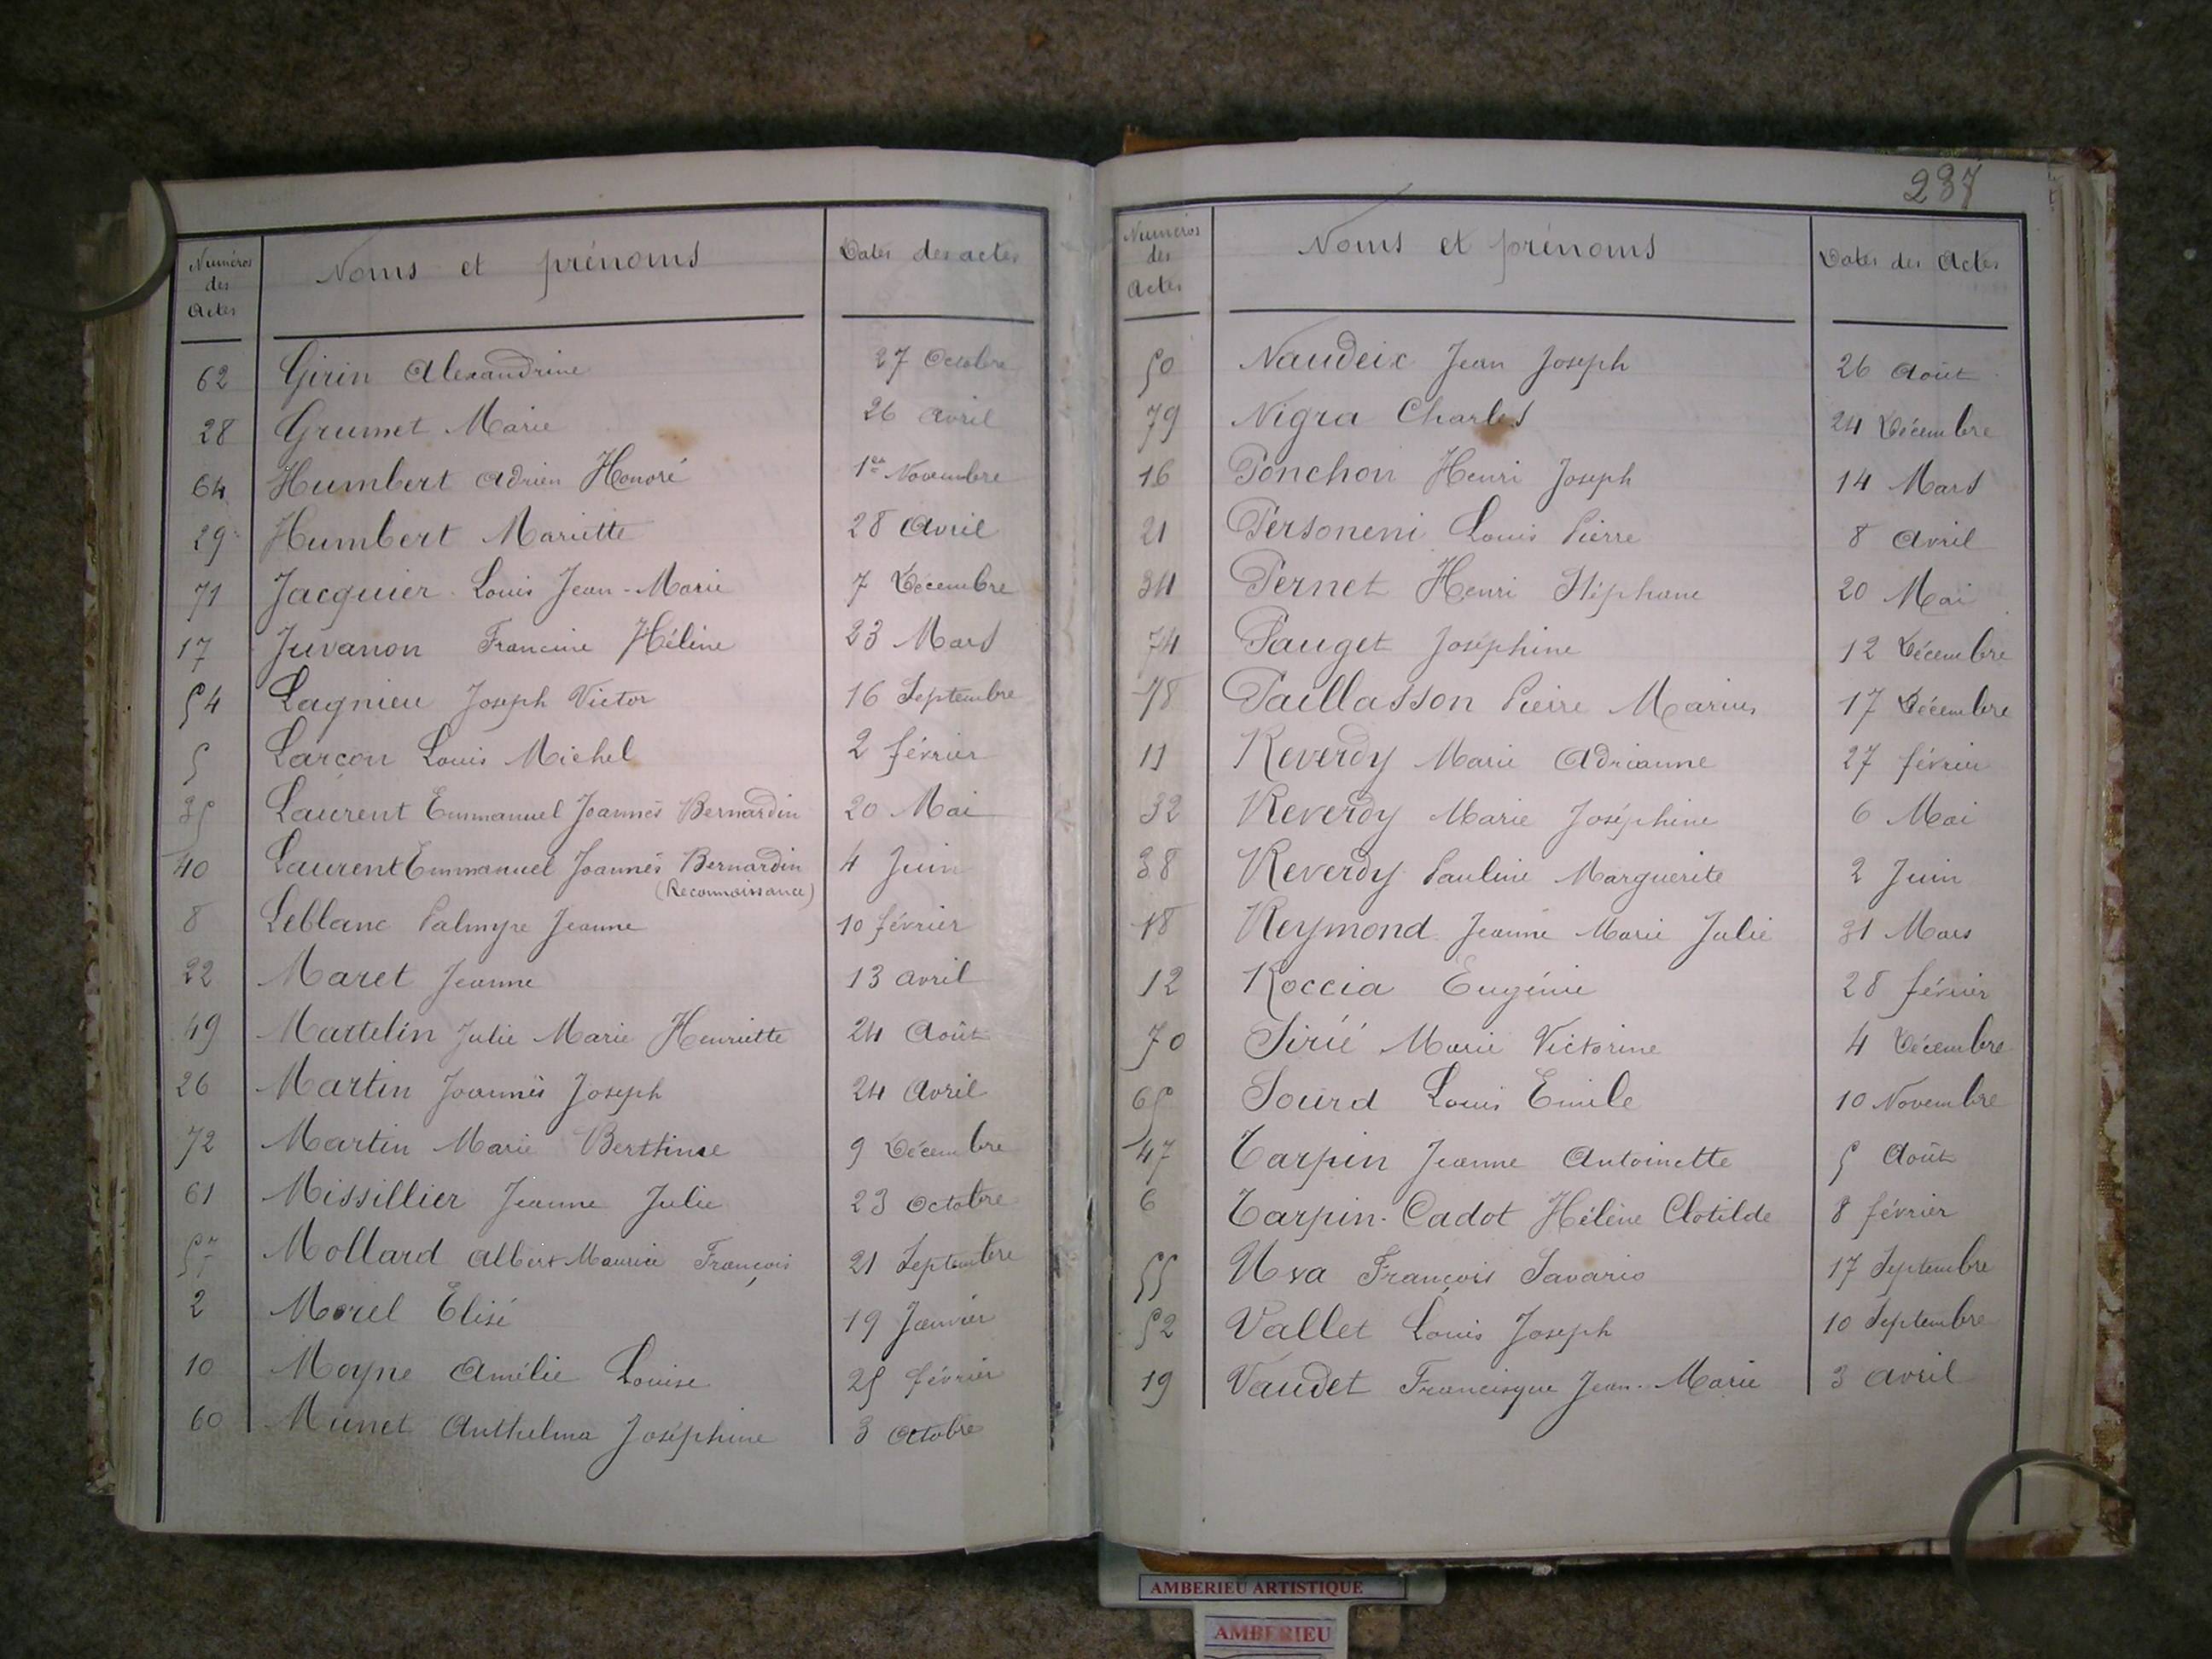 Numéros des Actes Noms et prénoms Dates des actes
62 Girin Alexandrine 27 Octobre
28 Grumet Marie 26 Avril
64 Humbert Adrien Honoré 1er Novembre
29 Humbert Mariette 28 Avril
71 Jacquier Louis Jean-Marie 7 Décembre
17 Juvanon Francine Hélène 23 Mars
54 Lagnieu Joseph Victor 16 Septembre
5 Larçon Louis Michel 2 février
35 Laurent Emmanuel Joannès Bernardin 20 Mai
40 Laurent Emmanuel Joannès Bernardin 4 Juin
(Reconnaissance)
8 Leblanc Palmyre Jeanne 10 février
22 Maret Jeanne 13 avril
49 Martelin Julie Marie Henriette 24 Août
26 Martin Joannès Joseph 24 Avril
72 Martin Marie Berthine 9 Décembre
61 Missillier Jeanne Julie 23 Octobre
57 Mollard Albert Maurice François 21 Septembre
2 Morel Elisé 19 Janvier
10 Moyne Amélie Louise 25 février
60 Munet Anthelma Joséphine 3 Octobre
237
Numéros des Actes Noms et prénoms Dates des Actes
50 Naudeix Jean Joseph 26 Août
79 Nigra Charles 24 Décembre
16 Ponchon Henri Joseph 14 Mars
21 Personeni Louis Pierre 8 Avril
34 Pernet Henri Stéphane 20 Mai
74 Pauget Joséphine 12 Décembre
78 Paillasson Pierre Marius 17 Décembre
11 Reverdy Marie Adrianne 27 février
32 Reverdy Marie Joséphine 6 Mai
38 Reverdy Pauline Marguerite 2 Juin
18 Reymond Jeanne Marie Julie 31 Mars
12 Roccia Eugénie 28 février
70 Sirié Marie Victorine 4 Décembre
65 Sourd Louis Emile 10 Novembre
47 Tarpin Jeanne Antoinette 5 Août
6 Tarpin-Cadot Hélène Clotilde 8 février
55 Uva François Savario 17 Septembre
52 Vallet Louis Joseph 10 Septembre
19 Vaudet Francisque Jean-Marie 3 Avril
AMBERIEU ARTISTIQUE
AMBERIEU